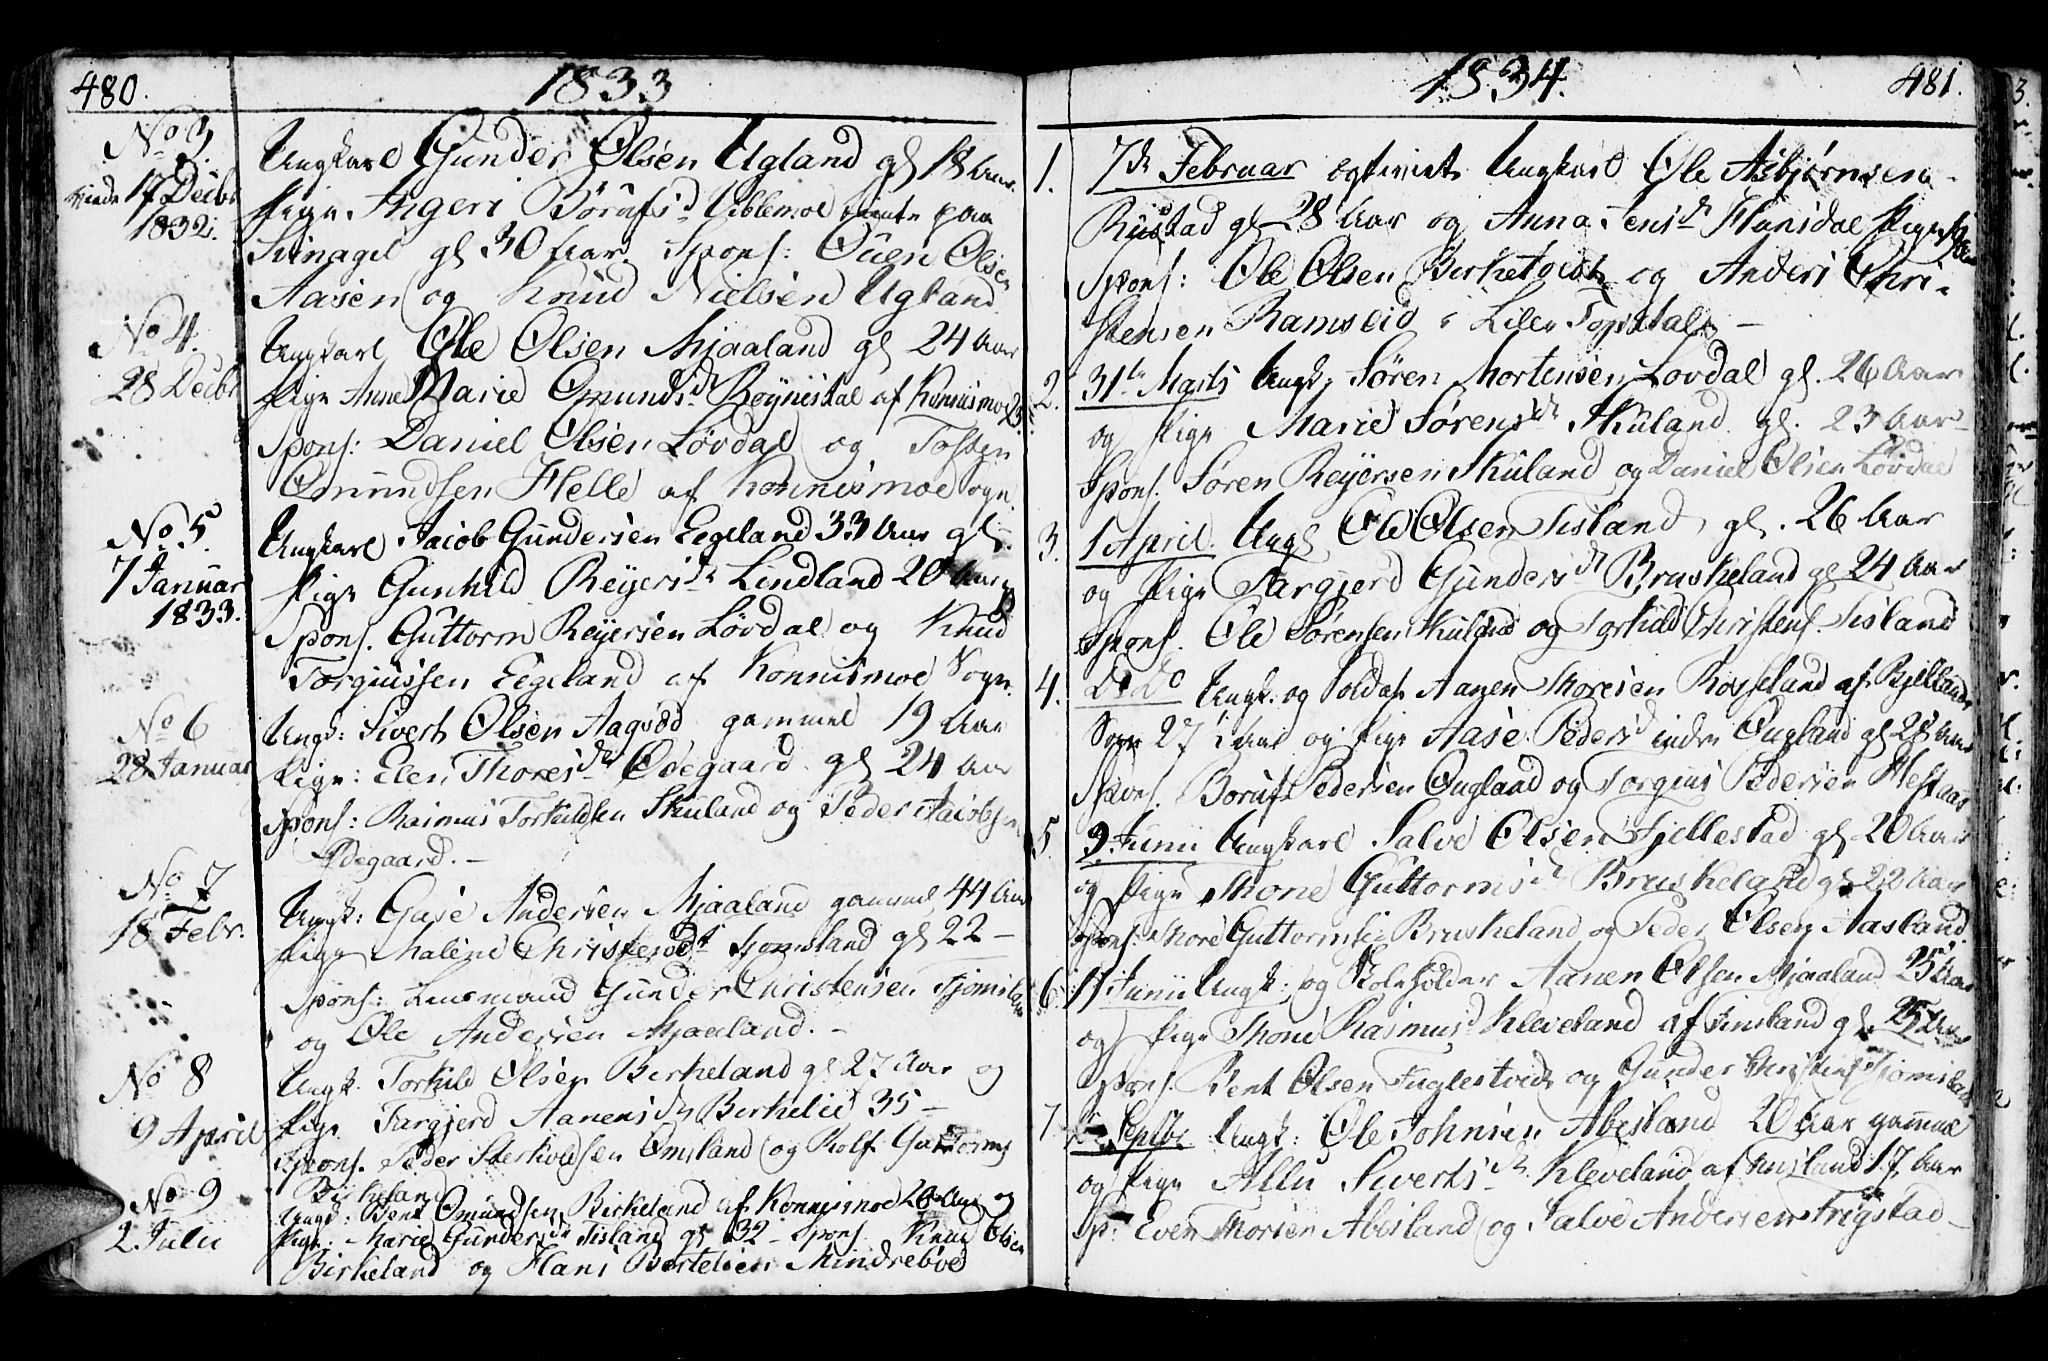 480.
1833
No 3.
viede 17 Decbr
1832.
Ungkarl Gunder Olsen Ugland gl 18 Aar.
Pige Ingeri Børufsd Ublemoe tiente paa
Svinagel gl 30 Aar. Spons: Ouen Olsen
Aasen og Knud Nielsen Ugland
No 4.
28 Decbr
Ungkarl Ole Olsen Mjaaland gl 24 Aar
Pige Anne Marie Omundsdr Røynestal af Konnismoe 23.
Spons: Daniel Olsen Løvdal og Tosten
Omundsen Helle af Konnismoe Sogn.
No 5.
7 Januar
1833.
Ungkarl Jacob Gundersen Eegeland 33 Aar gl.
Pige Gunhild Reyersdr Lindland 20 Aar gl
Spons. Guttorm Reyersen Løvdal og Knud
Torgiussen Eegeland af Konnismoe Sogn.
No 6
28 Januar
Ungk: Sivert Olsen Aagsød gammel 19 Aar
Pige: Elen Thoresdr Ødegaard gl 24 Aar
Spons: Rasmus Torkildsen Skuland og Peder Jacobsen
Ødegaard. –
No 7
18 Febr.
Ungk: Gase Andersen Mjaaland gammel 44 Aar
Pige Malene Christensdr Tjomsland gl 22 –
Spons: Lensmand Gunder Christensen Tjomsland
og Ole Andersen Mjaaland. –
No 8
9 April
Ungk. Torkild Olsen Birkeland gl 27 Aar og
Pige Targjerd Aanensdr Birkelie 35 –
Spons. Peder Sterkoldsen Omland og Rolf Guttorms
Birkeland
No 9
2 Julii
Ungk: Bent Omundsen Birkeland af Konnismoe 20 Aar og
Pige: Marie Gundersdr Tisland gl 32 – Spons. Knud Olsen
Birkeland og Hans Bertelsen Mindrebøe
1834.
481.
1. 7de Februar egteviet Ungkarl Ole Asbjørnsen
Rustad gl 28 Aar og Anna Jensdr Flansdal Pige
Spons: Ole Olsen Birketvedt og Anders Chri-
stensen Ramseid i Lille Topdal –
2. 31te Marts Ungk. Søren Mortensen Lovdal gl. 26 Aar
og Pige Marie Sørensdr Skuland gl. 23 Aar
Spons. Søren Reyersen Skuland og Daniel Olsen Løvdal
3. 1 April Ungk Ole Olsen Tisland gl. 26 Aar
og Pige Targjerd Gundersdr Bruskeland gl 24 Aar
Spons. Ole Sørensen Skuland og Torkild Christens. Tisland
4. Do Do Ungk. og Soldat Aanen Thoresen Røysland af Bjellands
Sogn 27 Aar og Pige Aase Pedersd indre Øugland gl 28 Aar
Spons. Boruf Pedersen Øugland og Torgius Pedersen Hestaas
5. 9 Junii Ungkarl Salve Olsen Fjellestad gl 20 Aar
og Pige Thone Guttormsdr Bruskeland gl 22 Aar
Spons: Thore Guttormsen Bruskeland og Peder Olsen Aasland
6. 17 Junii Ungk: og Skoleholder Aanen Olsen Mjaaland 25 Aar
og Pige Thone Rasmusd Kleveland af Finsland gl. 25 Aar
Spons. Bent Olsen Fuglestvedt og Gunder Christens Tjomsland
7. Septbr Ungk: Ole Johnsen Abesland 20 Aar gammel
og Pige Allis Sivertsdr Kleveland af Finsland 17 Aar
Sp: Even Thorsen Abesland og Salve Andersen Frigstad –